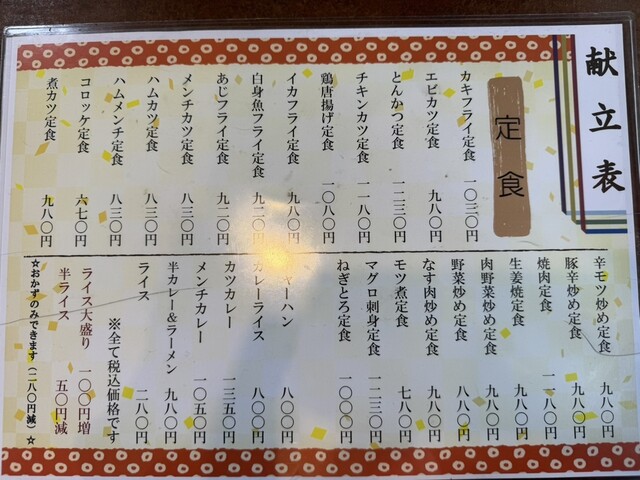 献立表
定食
カキフライ定食 一〇三〇円
エビカツ定食 九八〇円
とんかつ定食 一一三〇円
チキンカツ定食 一一八〇円
鶏唐揚げ定食 一〇八〇円
イカフライ定食 九八〇円
白身魚フライ定食 九二〇円
あじフライ定食 九二〇円
メンチカツ定食 八三〇円
ハムカツ定食 八三〇円
ハムメンチ定食 八三〇円
コロッケ定食 六七〇円
煮カツ定食 九八〇円
辛モツ炒め定食 九八〇円
豚辛炒め定食 九八〇円
焼肉定食 一一八〇円
生姜焼定食 九八〇円
肉野菜炒め定食 九八〇円
野菜炒め定食 八八〇円
なす肉炒め定食 九八〇円
モツ煮定食 七八〇円
マグロ刺身定食 一一三〇円
ねぎとろ定食 一〇〇〇円
ャーハン 八〇〇円
カレーライス 八〇〇円
カツカレー 一三五〇円
メンチカレー 一〇五〇円
半カレー&ラーメン 九八〇円
ライス 二八〇円
※全て税込価格です
ライス大盛り 一〇〇円増
半ライス 五〇円減
☆おかずのみできます(二八〇円減)☆